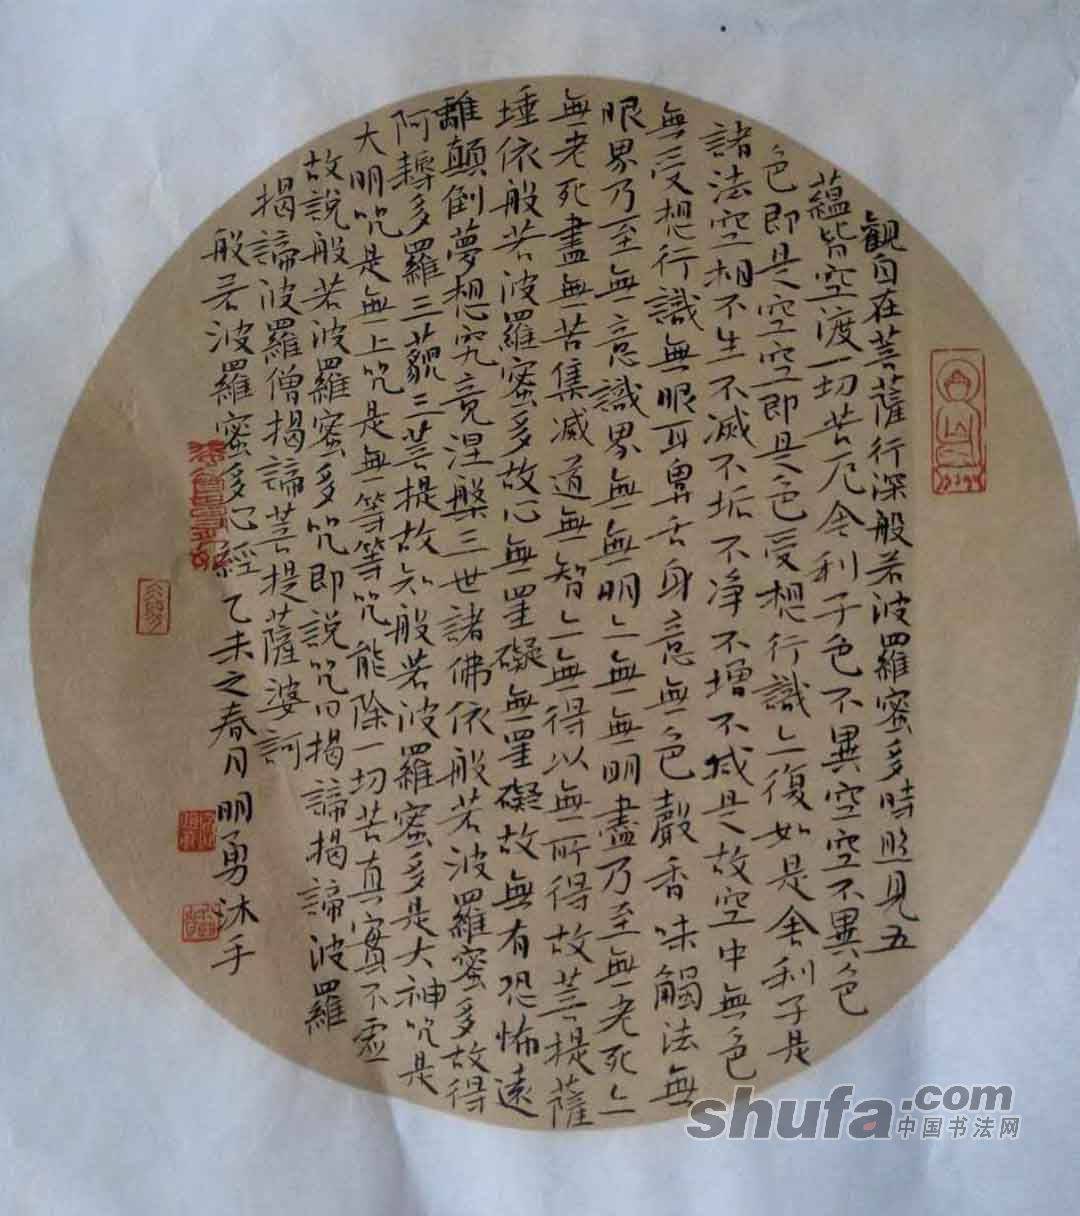 觀自在菩薩行深般若波羅蜜多時照見五
蘊皆空渡一切苦厄舍利子色不異空空不異色
色即是空空即是色受想行識亦復如是舍利子是
諸法空相不生不滅不垢不净不增不减是故空中無色
無受想行識無眼耳鼻舌身意無色聲香味觸法無
眼界乃至無意識界無無明亦無無明盡乃至無老死亦
無老死盡無苦集滅道無智亦無得以無所得故菩提薩
埵依般若波羅蜜多故心無罣礙無罣礙故無有恐怖遠
離顛倒夢想究竟涅槃三世諸佛依般若波羅蜜多故得
阿耨多羅三藐三菩提故知般若波羅蜜多是大神咒是
大明咒是無上咒是無等等咒能除一切苦真實不虛
故說般若波羅蜜多咒即說咒曰揭諦揭諦波羅
揭諦波羅僧揭諦菩提薩婆訶
般若波羅蜜多心經 乙未之春月明勇沐手
shufa.com
中国书法网